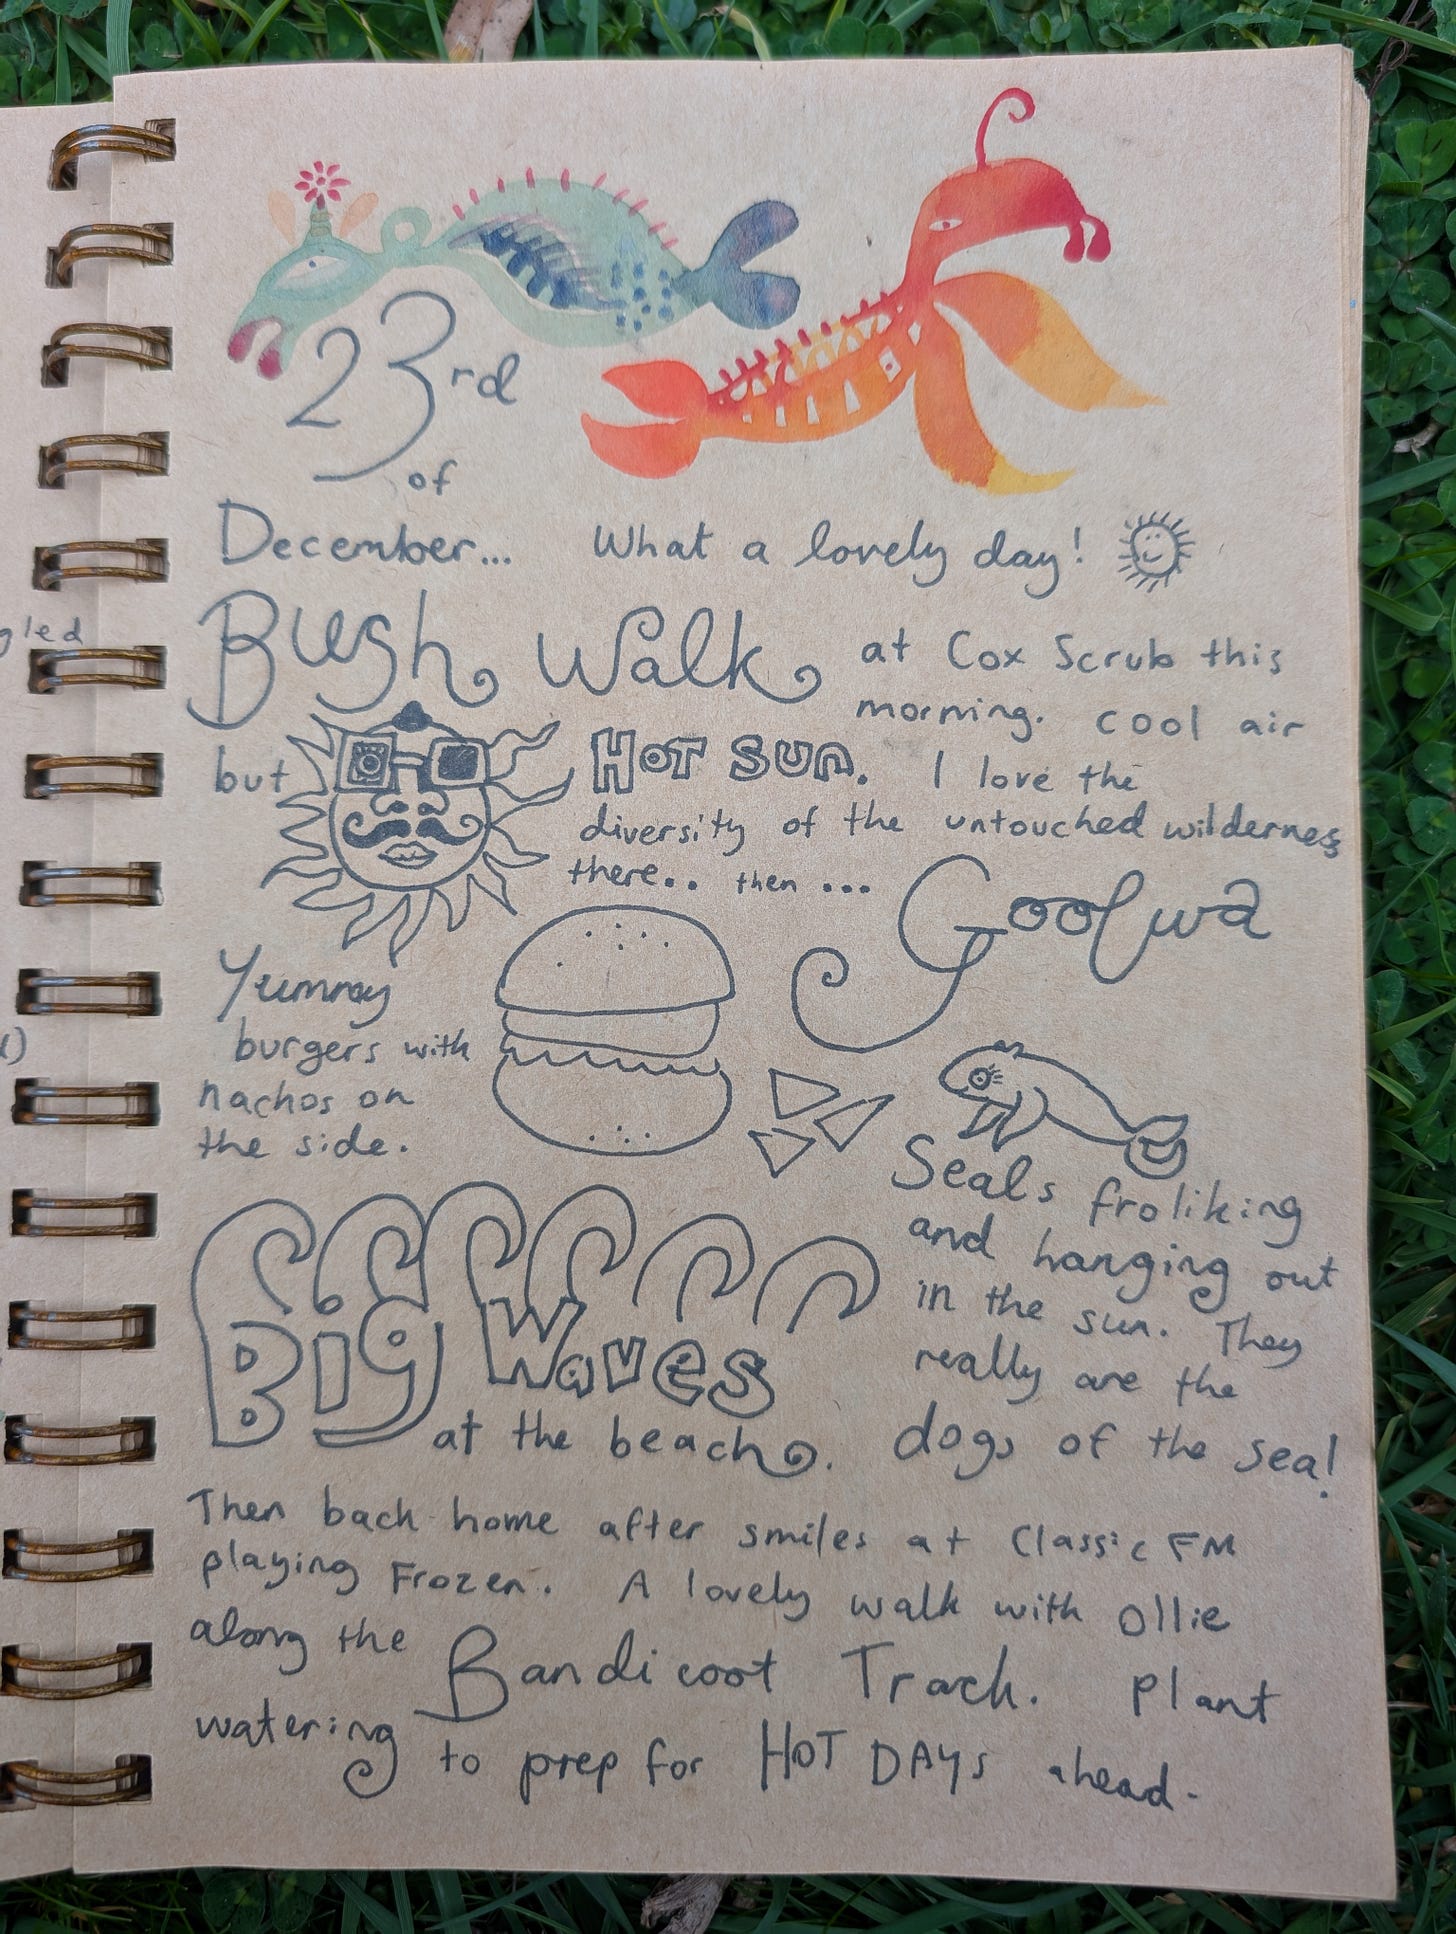 gled
23rd
of
December... What a lovely day!
Bush Walk at Cox Scrub this
morning. cool air
but HOT SUN. I love the
diversity of the untouched wilderness
there.. then ...
Goolwa
Yummy
burgers with
nachos on
the side.
Seals froliking
and hanging out
in the sun. They
really are the
dogs of the sea!
Big Waves
at the beach.
Then back home after smiles at Classic FM
playing Frozen. A lovely walk with Ollie
along the Bandicoot Track. Plant
watering to prep for HOT DAYS ahead.